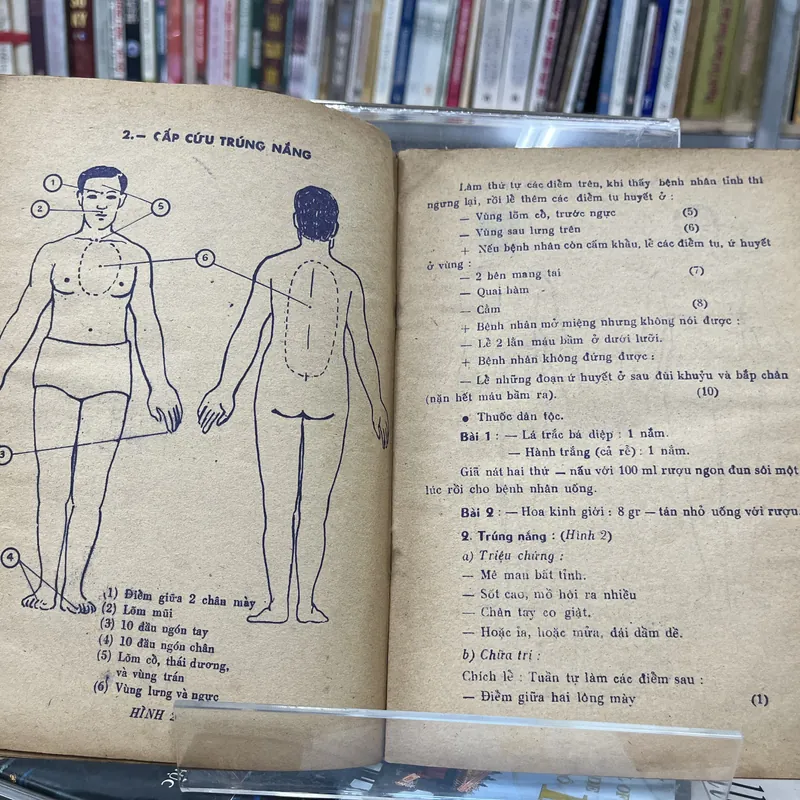 2.— CẤP CỨU TRÚNG NẮNG
1
2
5
6
3
4
(1) Điểm giữa 2 chân mày
(2) Lõm mũi
(3) 10 đầu ngón tay
(4) 10 đầu ngón chân
(5) Lõm cổ, thái dương,
và vùng trán
(6) Vùng lưng và ngực
HÌNH 2
Làm thứ tự các điểm trên, khi thấy bệnh nhân tỉnh thì
ngưng lại, rồi lể thêm các điểm tu huyết ở :
— Vùng lõm cổ, trước ngực (5)
— Vùng sau lưng trên (6)
+ Nếu bệnh nhân còn cấm khẩu, lể các điểm tụ, ứ huyết
ở vùng :
— 2 bên mang tai (7)
— Quai hàm
— Cằm (8)
+ Bệnh nhân mở miệng nhưng không nói được :
— Lể 2 lằn máu bầm ở dưới lưỡi.
+ Bệnh nhân không đứng được :
— Lể những đoạn ứ huyết ở sau đùi khuỷu và bắp chân
(nặn hết máu bầm ra). (10)
• Thuốc dân tộc.
Bài 1 : — Lá trắc bá diệp : 1 nắm.
— Hành trắng (cả rễ) : 1 nắm.
Giã nát hai thứ — nấu với 100 ml rượu ngon đun sôi một
lúc rồi cho bệnh nhân uống.
Bài 2 : — Hoa kinh giới : 8 gr — tán nhỏ uống với rượu.
2. Trúng nắng : (Hình 2)
a) Triệu chứng :
— Mê mau bất tỉnh.
— Sốt cao, mồ hôi ra nhiều
— Chân tay co giật.
— Hoặc ỉa, hoặc mửa, đái dầm dề.
b) Chữa trị :
Chích lể : Tuần tự làm các điểm sau :
— Điểm giữa hai lông mày (1)